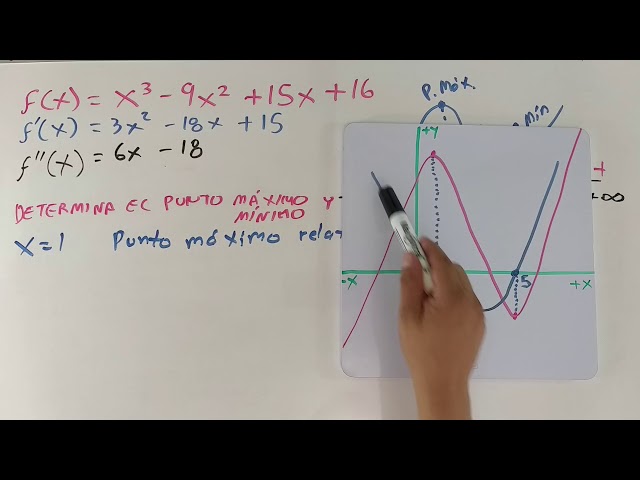 f(x) = x³ - 9x² + 15x + 16
f'(x) = 3x² - 18x + 15
f''(x) = 6x - 18
DETERMINA EL PUNTO MÁXIMO Y
MÍNIMO
x=1 Punto máximo rela
P. máx.
mín
+
+∞
+y
-x
5
+x